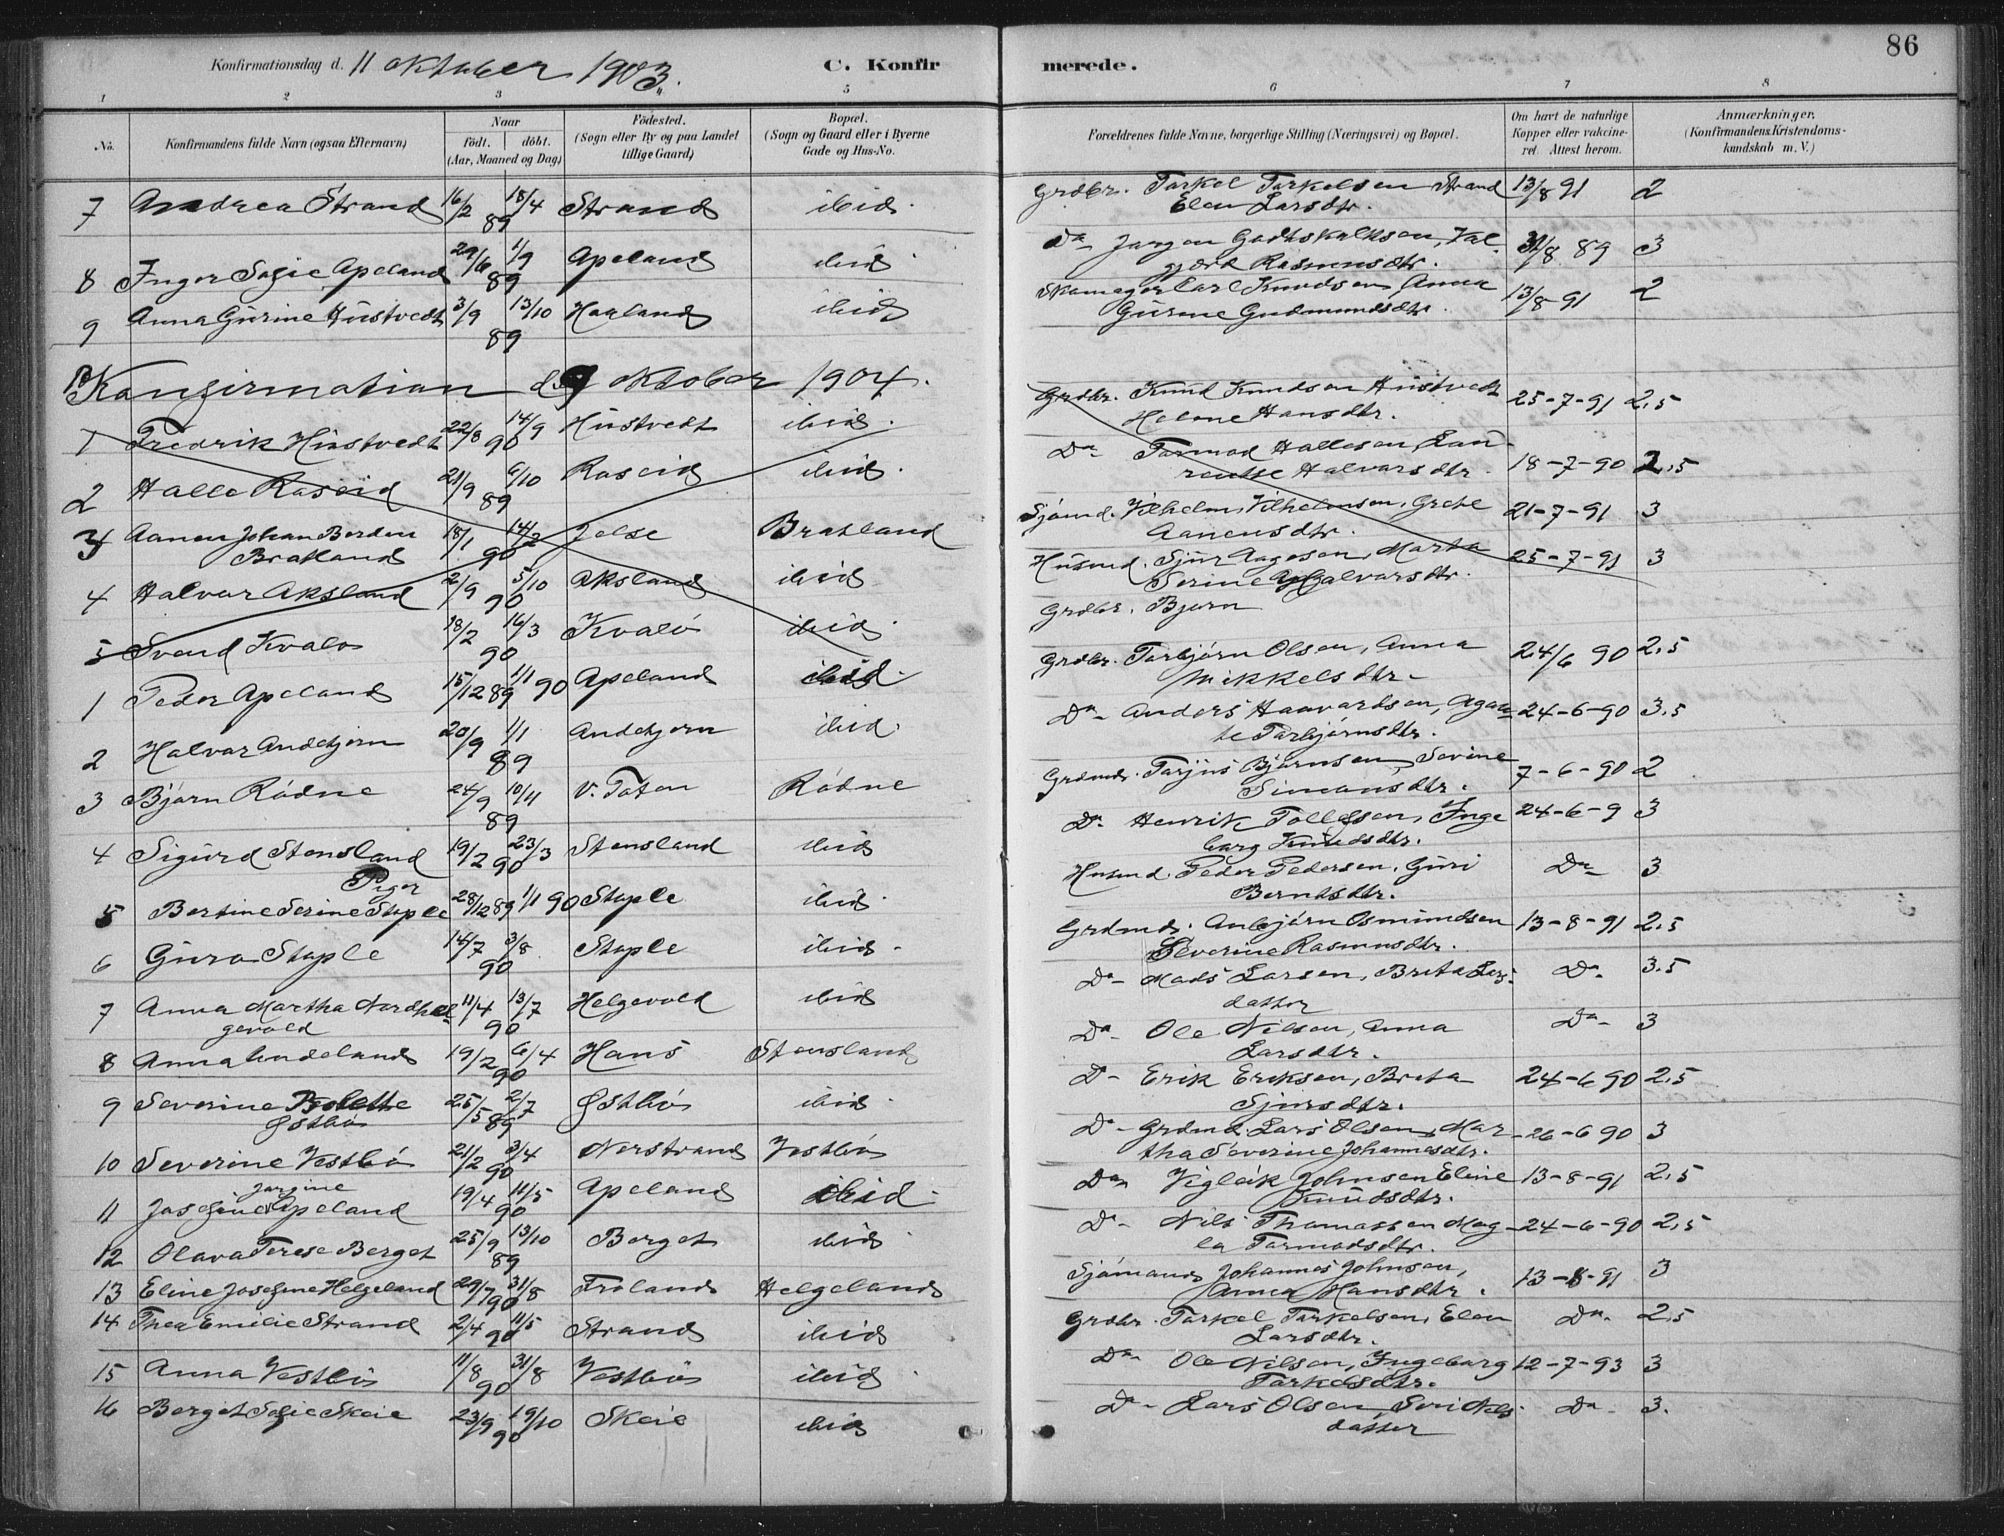 86
Konfirmationsdag d. 11 oktober 1903.
C. Konfirmerede.
1 2 3 5 6 7 8
No.
Konfirmandens fulde Navn (ogsaa Efternavn)
Naar
födt. döbt.
(Aar, Maaned og Dag)
Födested.
(Sogn eller By og paa Landet
tillige Gaard)
Bopæl.
(Sogn og Gaard eller i Byerne
Gade og Hus-No.
Forældrenes fulde Navne, borgerlige Stilling (Næringsvei) og Bopæl.
Om havt de naturlige
Kopper eller vakcine-
ret. Attest herom.
Anmærkninger.
(Konfirmandens Kristendoms-
kundskab m. V.)
7 Andrea Strand 16/2 18/4 89 Strand ibid. Grdbr. Torkel Torkelsen Strand 13/8 91 2
Elen Larsdtr.
8 Inger Sofie Apeland 29/6 1/9 89 Apeland ibid. Do Jørgen Godtskalksen, Val- 31/8 89 3
gjerd Rasmusdtr.
9 Anna Gurine Hustvedt 3/9 13/10 89 Haaland ibid Skomager Carl Knudsen, Anna 13/8-91 2
Gurine Gudmundsdtr.
Konfirmation d. 9 oktober 1904.
1 Fredrik Hustvedt 22/8 14/9 90 Hustvedt ibid. Grdbr. Knud Knudsen Hustvedt 25-7-91 2,5
Helene Hansdtr.
2 Halle Raseid 21/9 6/10 89 Raseid ibid. Do Tormod Hallesen, Lau- 18-7-90 2,5
rentse Halvorsdtr.
3 Aanen Johan Berdin 18/1 14/2 90 Jelse Bratland Sjömd. Vilhelm Vilhelmsen, Grete 21-7-91 3
Bratland Aanensdtr.
4 Halvor Aksland 2/9 5/10 90 Aksland ibid Husmd. Sjur Aagesen, Marta 25-7-91 3
Serine Halvorsdtr.
5 Svend Kvalö 18/2 16/3 90 Kvalö ibid. Grdbr. Bjørn
1 Peder Apeland 15/12 89 1/1 90 Apeland ibid. Grdbr. Torbjörn Olsen, Anna 24/6 90 2,5
Mikkelsdtr.
2 Halvor Andebjorn 20/9 1/1 89 Andebjorn ibid. Do Anders Haavardsen, Aga- 24-6-90 3,5
te Torbjörnsdtr.
3 Björn Rödne 24/9 10/11 89 V. Toten Rödne Grdmd. Torjus Björnsen, Sevine 7-6-90 2
Simonsdtr.
4 Sigurd Stensland 19/2 23/3 90 Stensland ibid Do Henrik Tollefsen, Inge 24-6-9 3
borg Knudsdtr.
Piger
5 Bertine Serine Stople 28/12 89 1/1 90 Stople ibid. Husmd. Peder Pedersen, Guri Do 3
Berntsdtr.
6 Guro Stople 14/7 3/8 90 Stople ibid. Grdmd. Anbjörn Osmundsen 13-8-91 2,5
Severine Rasmusdtr.
7 Anna Martha Nordhel 11/4 13/7 90 Helgevold ibid Do Mads Larsen, Brita Lars- Do 3.5
gevold datter
8 Anna Undeland 19/2 6/4 90 Hans Stensland Do Ole Nilsen, Anna Do 3
Larsdtr.
9 Severine Bolette 25/5 2/7 89 Östbö ibid. Do Erik Eriksen, Brita 24-6 90 2,5
Östbö Sjursdtr.
10 Severine Vestbö 21/2 3/4 90 Nerstrand Vestbö Do Grdmd. Lars Olsen, Mar- 26-6 90 3
tha Severine Johannesdtr.
11 Josefine Jorgine Apeland 19/4 11/5 90 Apeland ibid. Do Vigleik Johnsen Eline 13-8-91 2,5
Knudsdtr.
12 Olava Terese Berget 25/9 13/10 89 Berget ibid. Do Nils Thomassen Mag- 24-6-90 2,5
la Tormodsdtr.
13 Eline Josefine Helgeland 29/7 31/8 90 Froland Helgeland Sjömand Johannes Johnsen, 13-8-91 3
Anna Hansdtr.
14 Thea Emilie Strand 2/4 11/5 90 Strand ibid Grdbr. Torkel Torkelsen, Elen Do 2,5
Larsdtr.
15 Anna Vestbö 11/8 31/8 90 Vestbö ibid Do Ole Nilsen, Ingeborg 12-7-93 3
Torkelsdtr.
16 Berget Sofie Skeie 23/9 19/10 90 Skeie ibid Do Lars Olsen, Siri Nels- Do 3.
datter